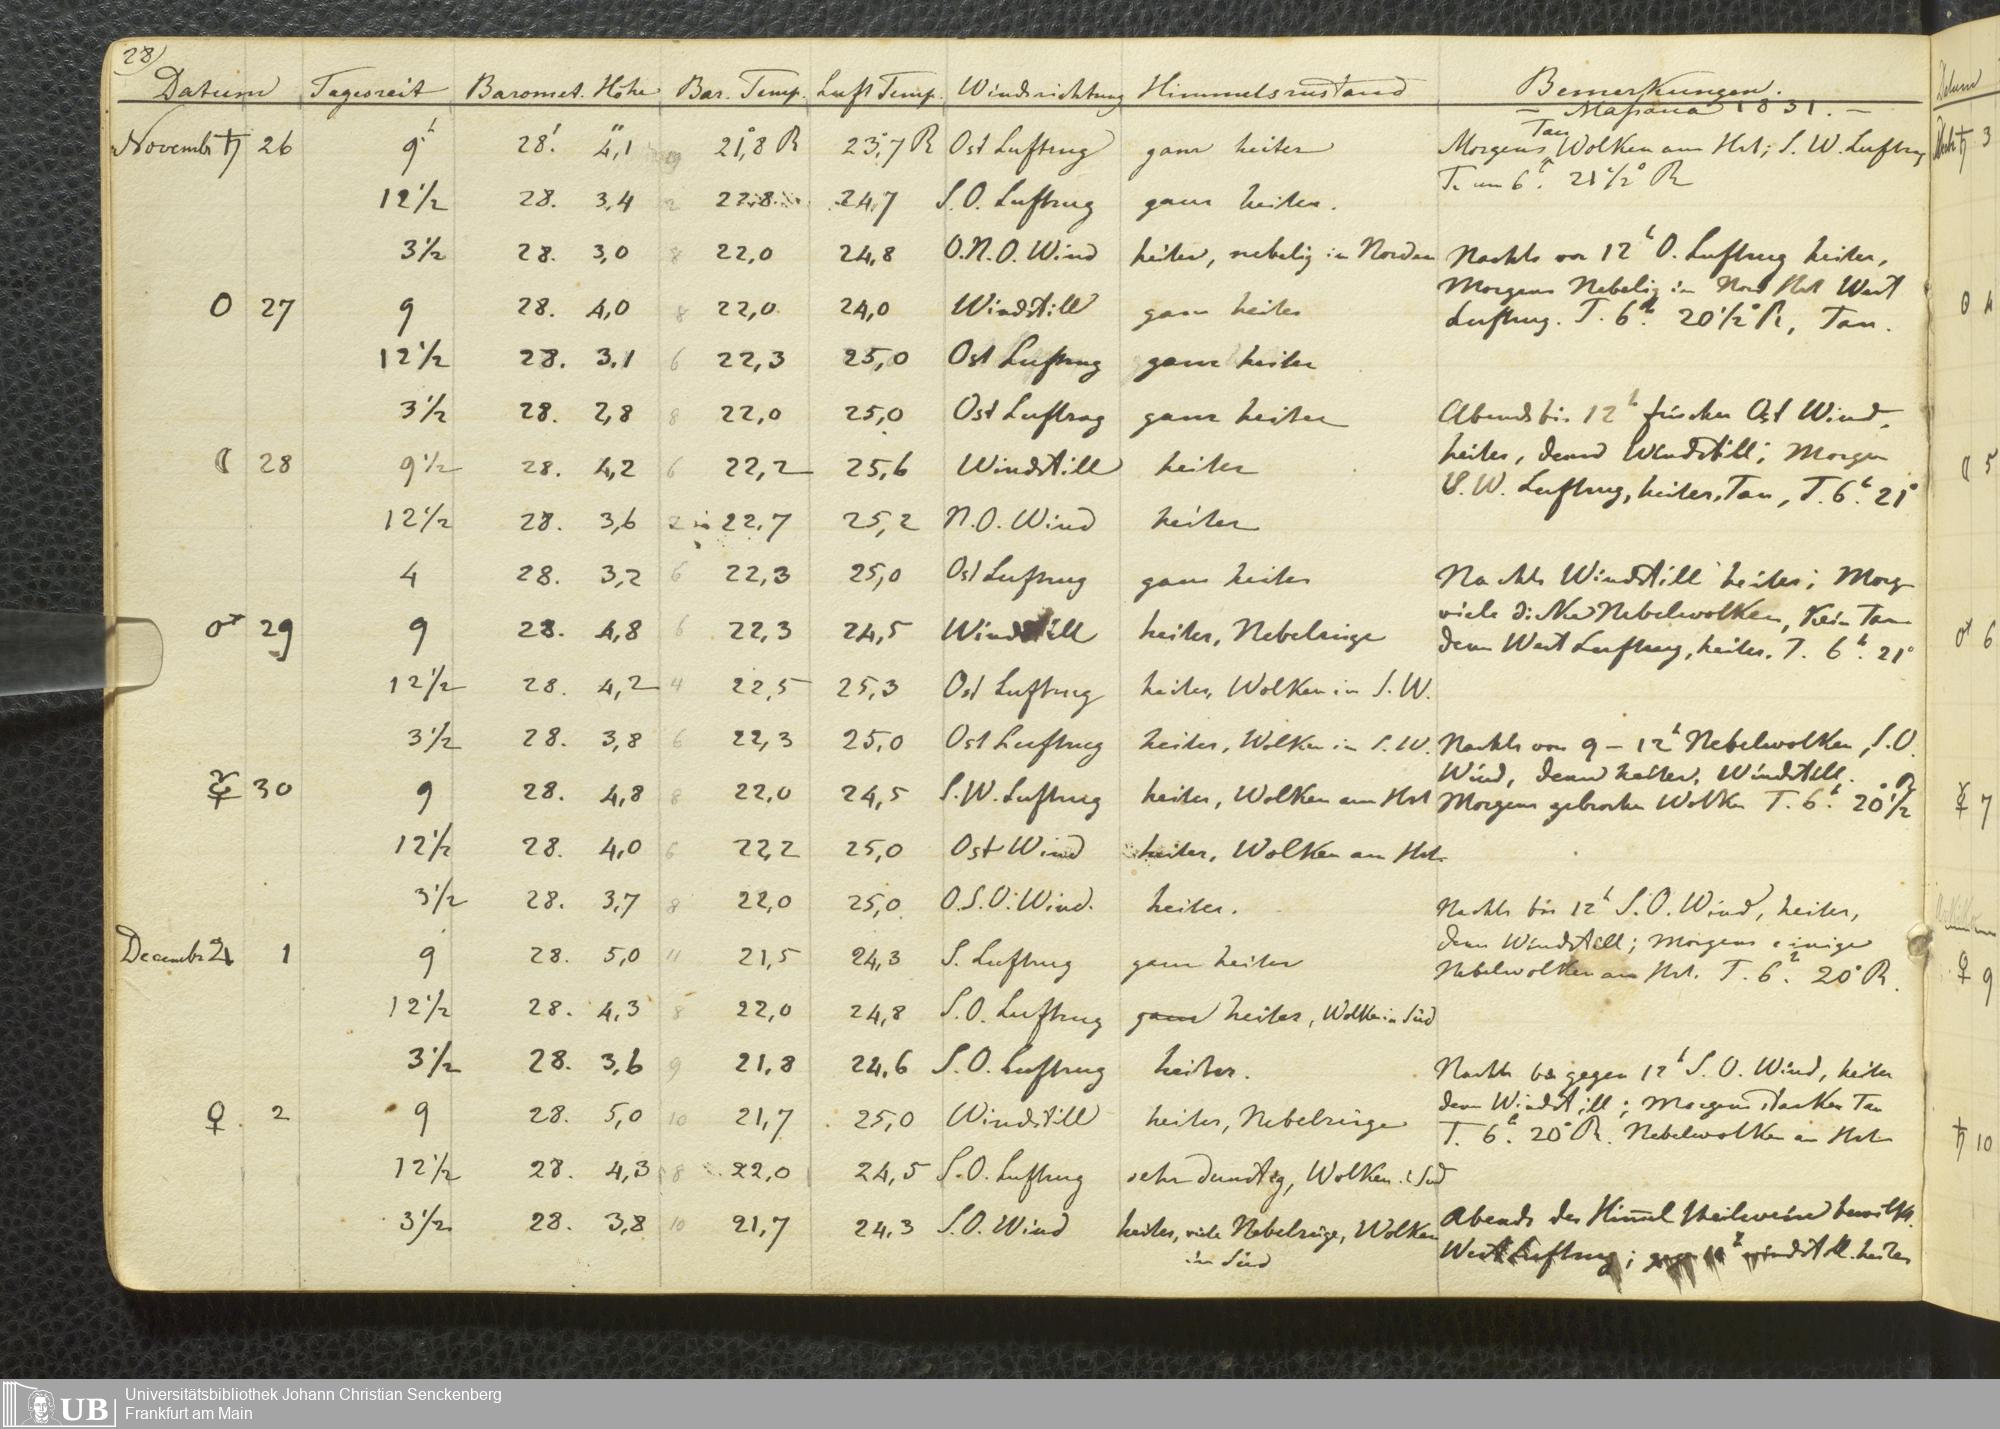 28)
Datum Tageszeit Baromet. Höhe Bar. Temp. Luft Temp. Windsrichtung Himmelszustand Bemerkungen.
– Massaua 1831. –
Novembr ♄ 26 9h 28' 4,1''' 21,8° R 23,7° R Ost Luftzug ganz heiter Morgens Tau Wolken am Hrt; S. W. Luftzug
T. um 6h. 21 1/2° R
12 1/2 28. 3,4 2 22,8 24,7 S. O. Luftzug ganz heiter.
3 1/2 28. 3,0 8 22,0 24,8 O.N.O. Wind heiter, nebelig in Norden Nachts vor 12h O. Luftzug heiter,
Morgens Nebelig im Nord Hrt West
☉ 27 9 28. 4,0 8 22,0 24,0 Windstill ganz heiter Luftzug. T. 6h. 20 1/2° R, Tau.
12 1/2 28. 3,1 6 22,3 25,0 Ost Luftzug ganz heiter
3 1/2 28. 2,8 8 22,0 25,0 Ost Luftzug ganz heiter Abends bis 12h frischer Ost Wind,
heiter, dann Windstill; Morgen
☾ 28 9 1/2 28. 4,2 6 22,2 25,6 Windstill heiter S. W. Luftzug, heiter, Tau, T. 6h. 21°
12 1/2 28. 3,6 2 22,7 25,2 N.O. Wind heiter
4 28. 3,2 6 22,3 25,0 Ost Luftzug ganz heiter Nachts Windstill heiter; Morg
viele dicke Nebelwolken, kein Tau
♂ 29 9 28. 4,8 6 22,3 24,5 Windstill heiter, Nebelzüge dann West Luftzug, heiter. T. 6h. 21°
12 1/2 28. 4,2 4 22,5 25,3 Ost Luftzug heiter, Wolken in S. W.
3 1/2 28. 3,8 6 22,3 25,0 Ost Luftzug heiter, Wolken in S. W. Nachts von 9 – 12h Nebelwolken, S.O.
Wind, dann heiter, Windstill.
☿ 30 9 28. 4,8 8 22,0 24,5 S.W. Luftzug heiter, Wolken am Hrt Morgens gebrochen Wolken T. 6h. 20 1/2° R
12 1/2 28. 4,0 6 22,2 25,0 Ost Wind heiter, Wolken am Hrt
3 1/2 28. 3,7 8 22,0 25,0 O.S.O. Wind. heiter. Nachts bis 12h S.O. Wind, heiter,
dann Windstill; Morgens einige
Decembr ♃ 1 9 28. 5,0 11 21,5 24,3 S. Luftzug ganz heiter Nebelwolken am Hrt. T. 6h. 20° R.
12 1/2 28. 4,3 8 22,0 24,8 S.O. Luftzug ganz heiter, Wolken in Süd
3 1/2 28. 3,6 9 21,8 24,6 S. O. Luftzug heiter. Nachts bis gegen 12h S. O. Wind, heiter
dann Windstill; Morgens starken Tau
♀ 2 9 28. 5,0 10 21,7 25,0 Windstill heiter, Nebelzüge T. 6h. 20° R. Nebelwolken am Hrt
12 1/2 28. 4,3 8 22,0 24,5 S.O. Luftzug sehr dunstig, Wolken i Süd
3 1/2 28. 3,8 10 21,7 24,3 S.O. Wind heiter, viele Nebelzüge, Wolken Abends der Himmel theilweise bewölkt.
in Süd West Luftzug; windstill. heiter
Datum
♄ 3
☉ 4
☾ 5
♂ 6
☿ 7
♀ 9
♄ 10
UB Universitätsbibliothek Johann Christian Senckenberg
Frankfurt am Main